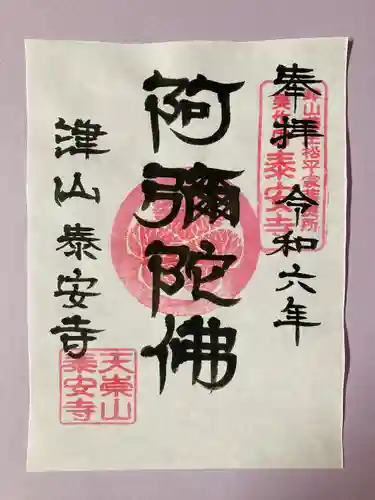 奉拝 令和六年
泰安寺
阿彌陀佛
津山泰安寺
天崇山
泰安寺